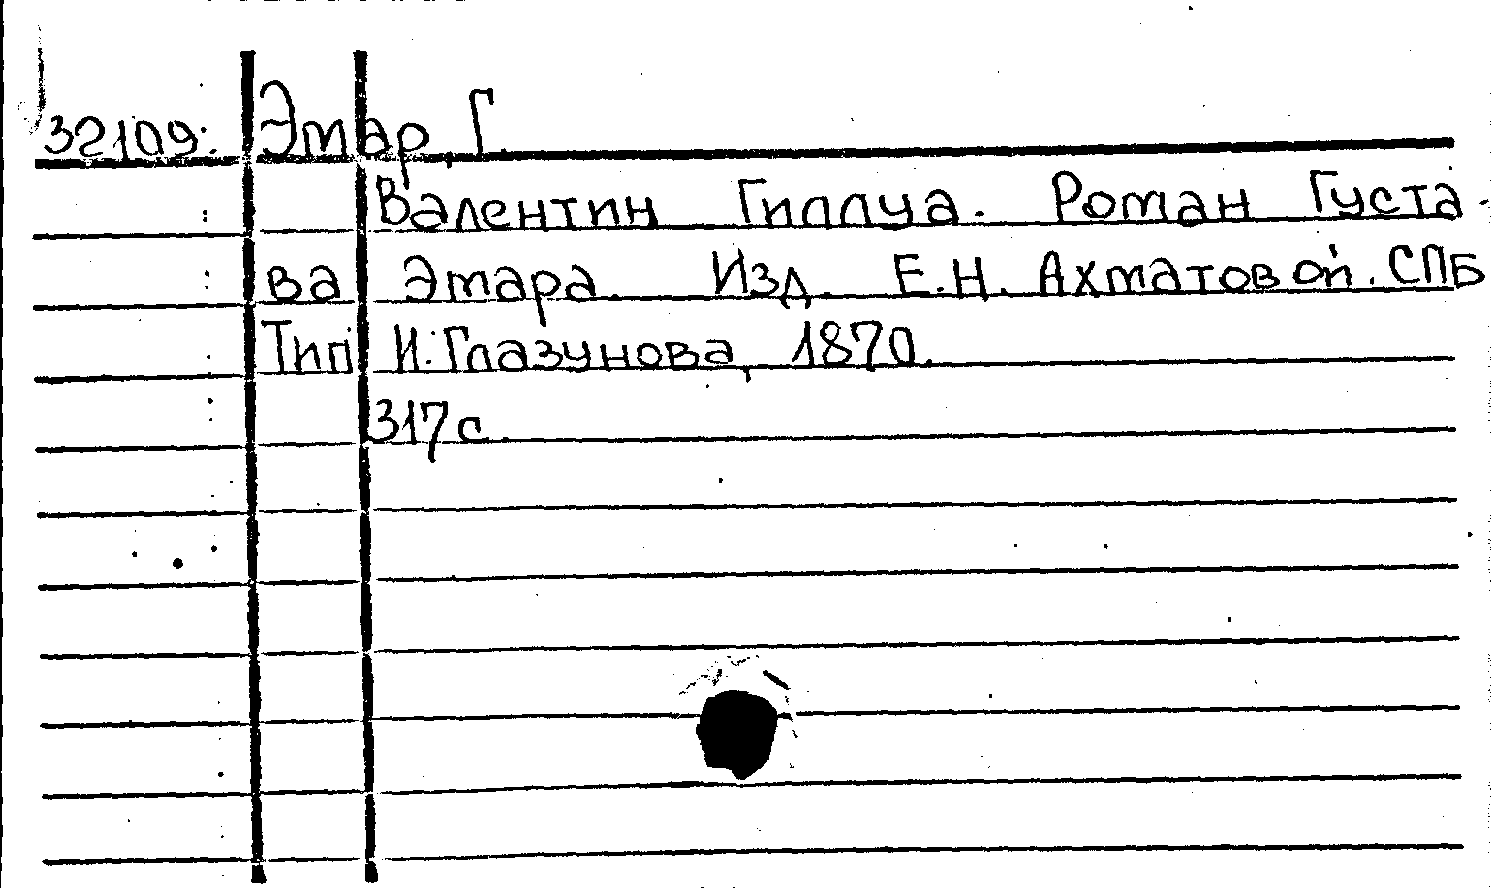 32109. Эмар, Г.
Валентин Гиллуа. Роман Густа-
ва Эмара. Изд. Е.Н. Ахматовой. СПБ
Тип И. Глазунова, 1870.
317 с.